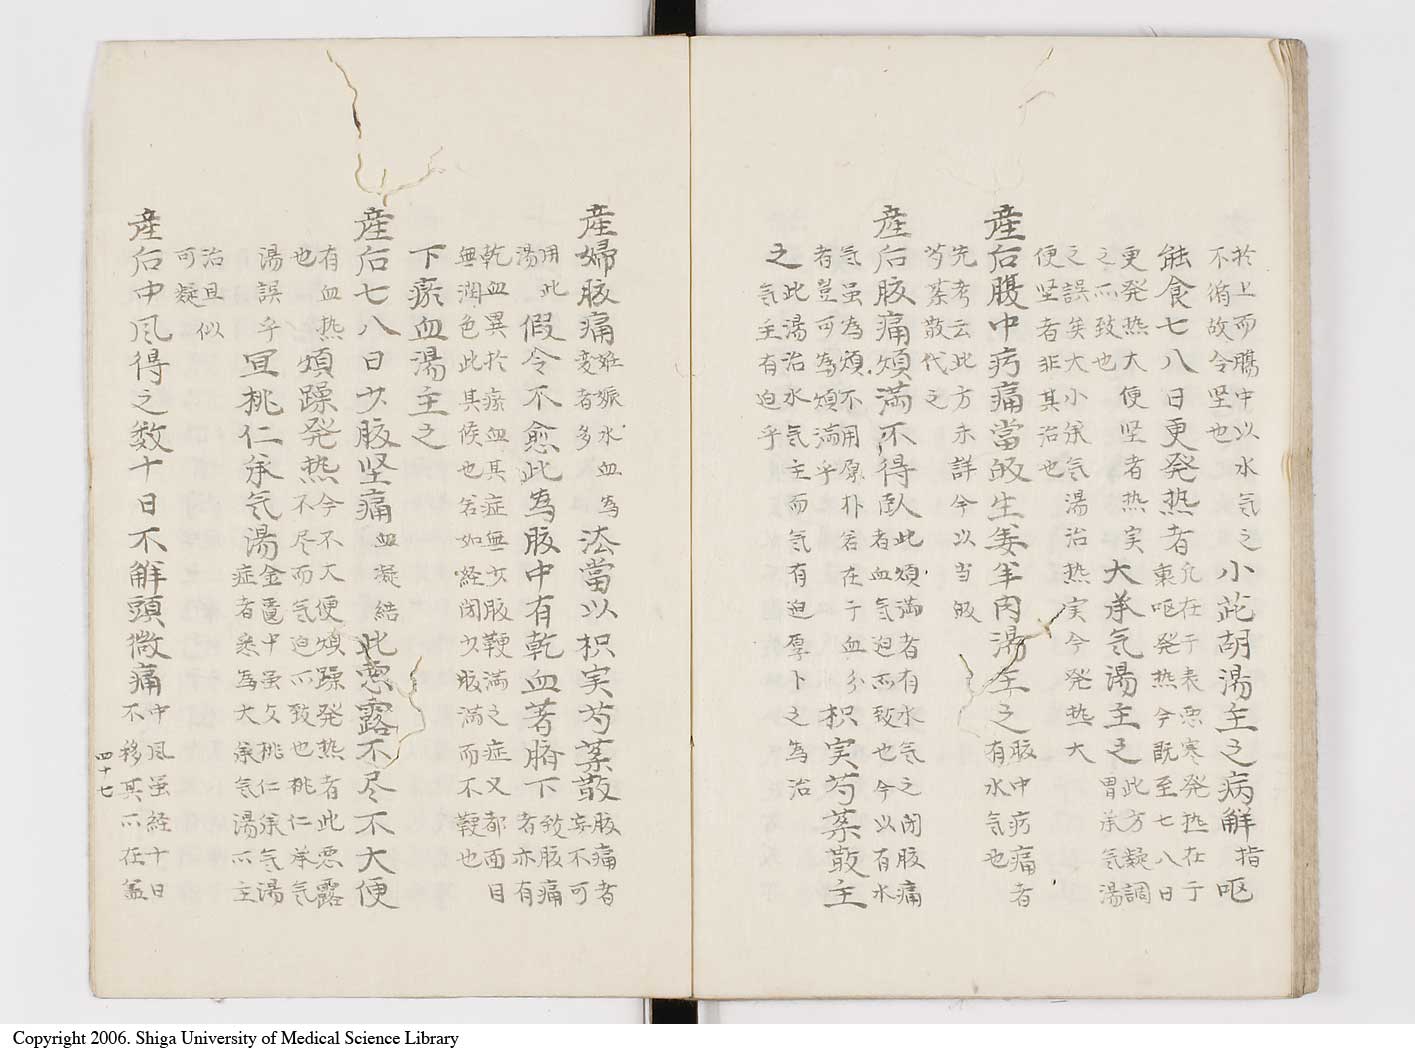 於上而膓中以水気之
不循故令坚也
小茈胡湯主之病觧
指呕
能食七八日更発热者
凡在于表悪寒発热在于
裏呕発热今既至七八日
更発热大便坚者热実
之所致也
大承気湯主之
此方疑調
胃承気湯
之誤矣大小承気湯治热実今発热大
便坚者非其治也
産后腹中㽲痛當皈生姜羊肉湯主之
腹中㽲痛者
有水気也
先考云此方未詳今以当皈
芍薬散代之
産后腹痛煩満不得臥
此煩満者有水気之閉腹痛
者血気迫所致也今以有水
気虽為煩不用厚朴若在于血分
者豈可為煩満乎
枳実芍薬散主
之
此湯治水気主而気有迫厚卜之為治
気主有迫乎
産婦腹痛
妊娠水血為
変者多
法當以枳実芍薬散
腹痛者
妄不可
用此
湯
假令不愈此為腹中有乾血著臍下
致腹痛
者亦有
乾血異於瘀血其症無少腹鞕満之症又都面目
無潤色此其候也若如経閉少腹満而不鞕也
下瘀血湯主之
産后七八日少腹坚痛
血凝結
此悪露不尽不大便
有血热
也
煩躁発热
今不大便煩躁発热者此悪露
不尽而気迫所致也桃仁承気
湯誤乎
宜桃仁承気湯
金匱中虽欠桃仁承気湯
症者悉為大承気湯所主
治且似
可疑
産后中風得之数十日不觧頭微痛
中風虽経十日
不移其所在盖
四十七